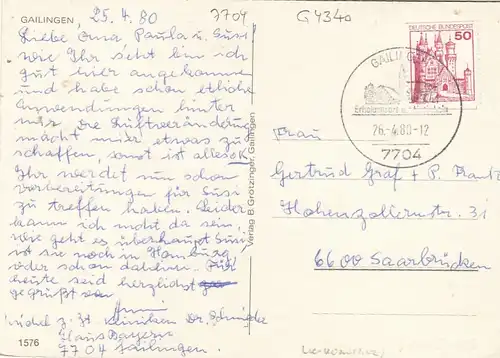 GAILINGEN, 25. 4. 80 7704
G 434a
Liebe Oma Paula u. Susi
wie Ihr seht bin ich
gut hier angekommen
und habe schon etliche
Anwendungen hinter
mir. Die Luftveränderung
macht mir etwas zu
schaffen, sonst ist alles OK
Ihr werdet nun schon
vorbereitungen für Susi
zu treffen haben. Leider
kann ich nicht da sein.
wie geht es überhaupt Susi
ist sie noch in Homburg
oder schon daheim. Für
heute seid herzlichst
gegrüßt von
z. Zt Kliniken Dr. Schmieder
Haus Bayern
7704 Gailingen.
1576
Verlag B. Grötzinger, Gailingen
DEUTSCHE BUNDESPOST
50
GAILINGEN
26.-4.80-12
7704
Frau
Gertrud Graf + P. Frantz
Hohenzollernstr. 31
6600 Saarbrücken